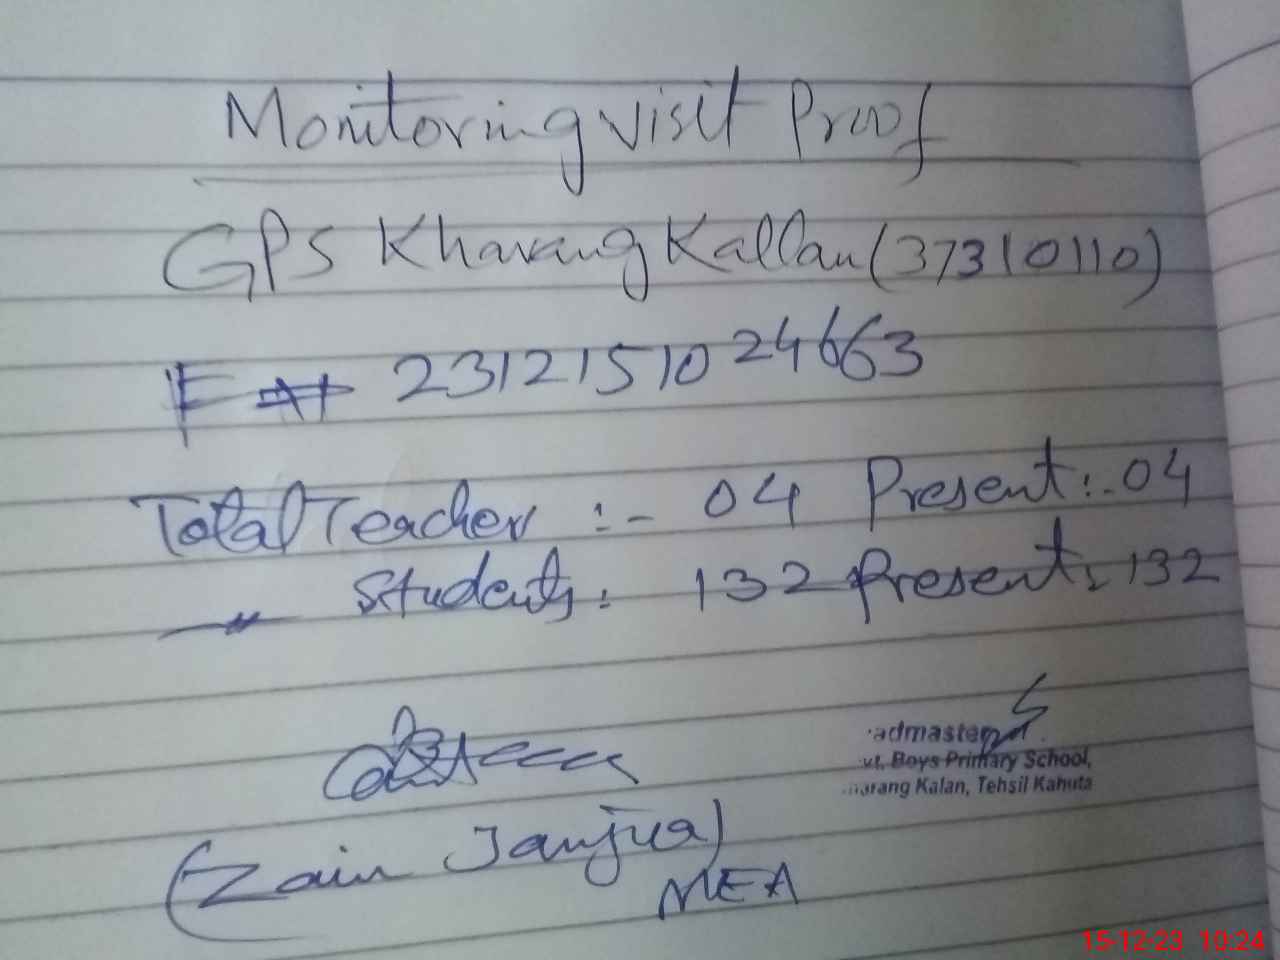 Monitoring visit Proof
GPS Kharang Kallan (37310110)
F # 2312151024663
Total Teacher :- 04 Present :- 04
〃 Students : 132 Present : 132
admaster
vt. Boys Primary School,
arang Kalan, Tehsil Kahuta
(Zain Janjua)
MEA
15-12-23 10:24